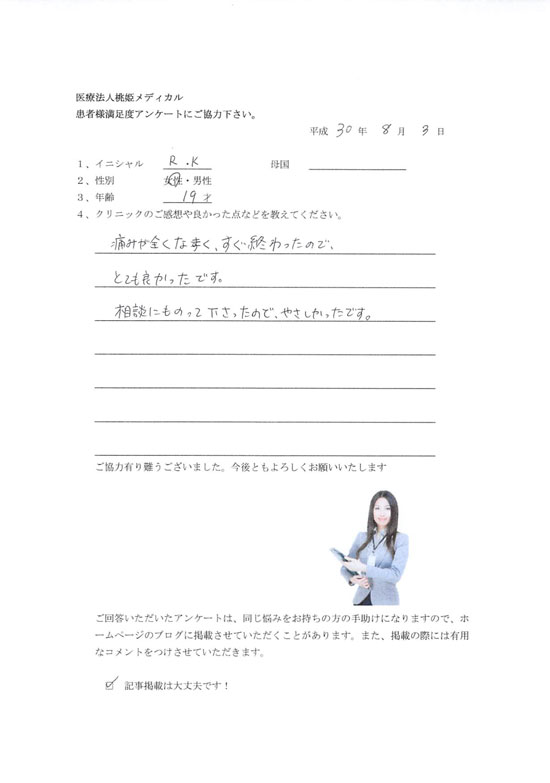 医療法人桃姫メディカル
患者様満足度アンケートにご協力下さい。
平成 30 年 8 月 3 日
1、イニシャル R.K 母国
2、性別 女性・男性
3、年齢 19才
4、クリニックのご感想や良かった点などを教えてください。
痛みが全くな無く、すぐ終わったので、
とても良かったです。
相談にものって下さったので、やさしかったです。
ご協力有り難うございました。今後ともよろしくお願いいたします
ご回答いただいたアンケートは、同じ悩みをお持ちの方の手助けになりますので、ホ
ームページのブログに掲載させていただくことがあります。また、掲載の際には有用
なコメントをつけさせていただきます。
☑ 記事掲載は大丈夫です！